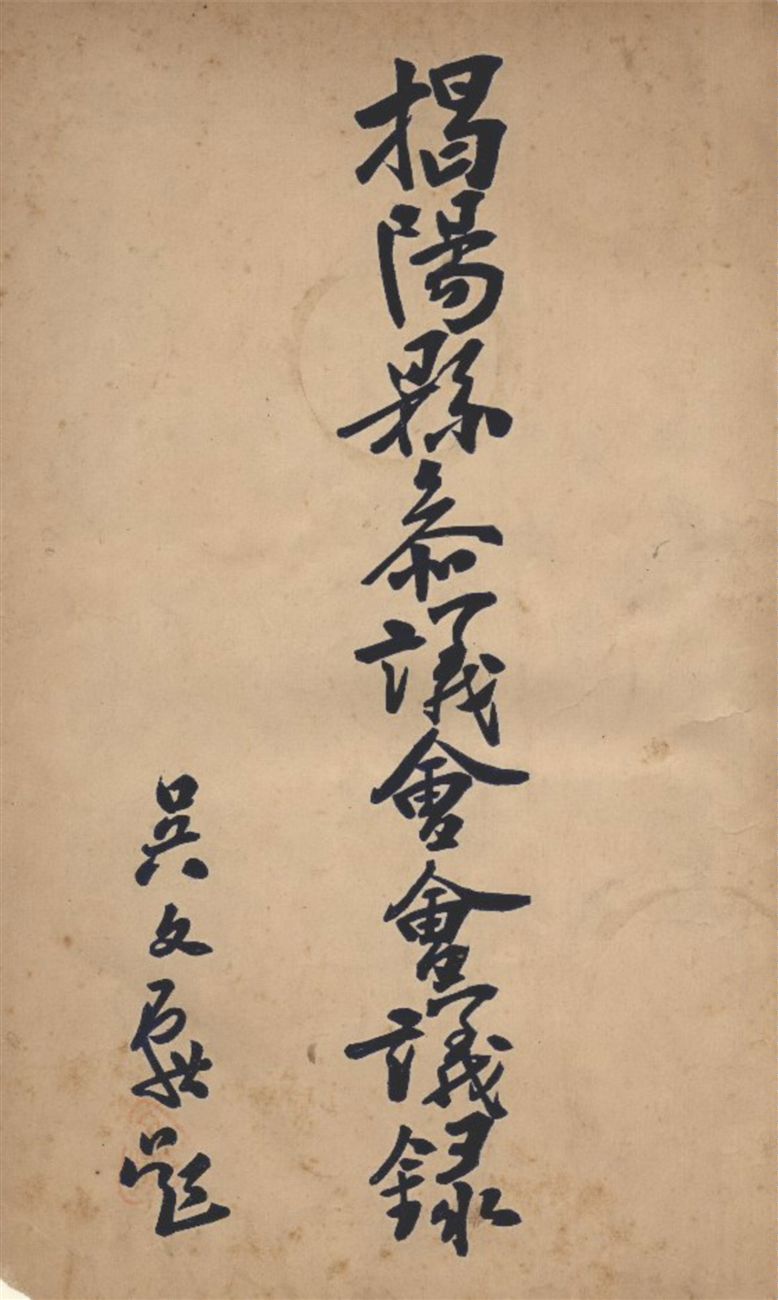 揭陽縣參議會會議錄
吳文題